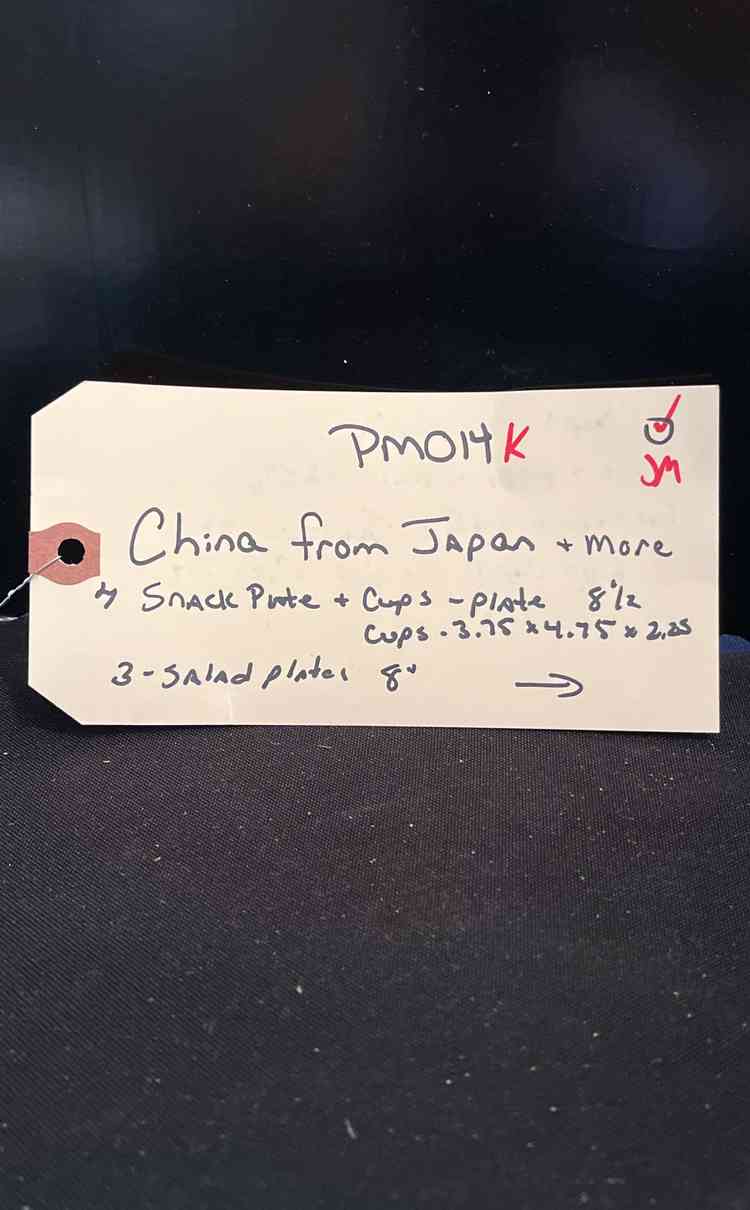 PM014K
JM
China from Japan + more
4 Snack Plate + Cups - plate 8 1/2
Cups - 3.75 x 4.75 x 2.25
3 - Salad plates 8"
→